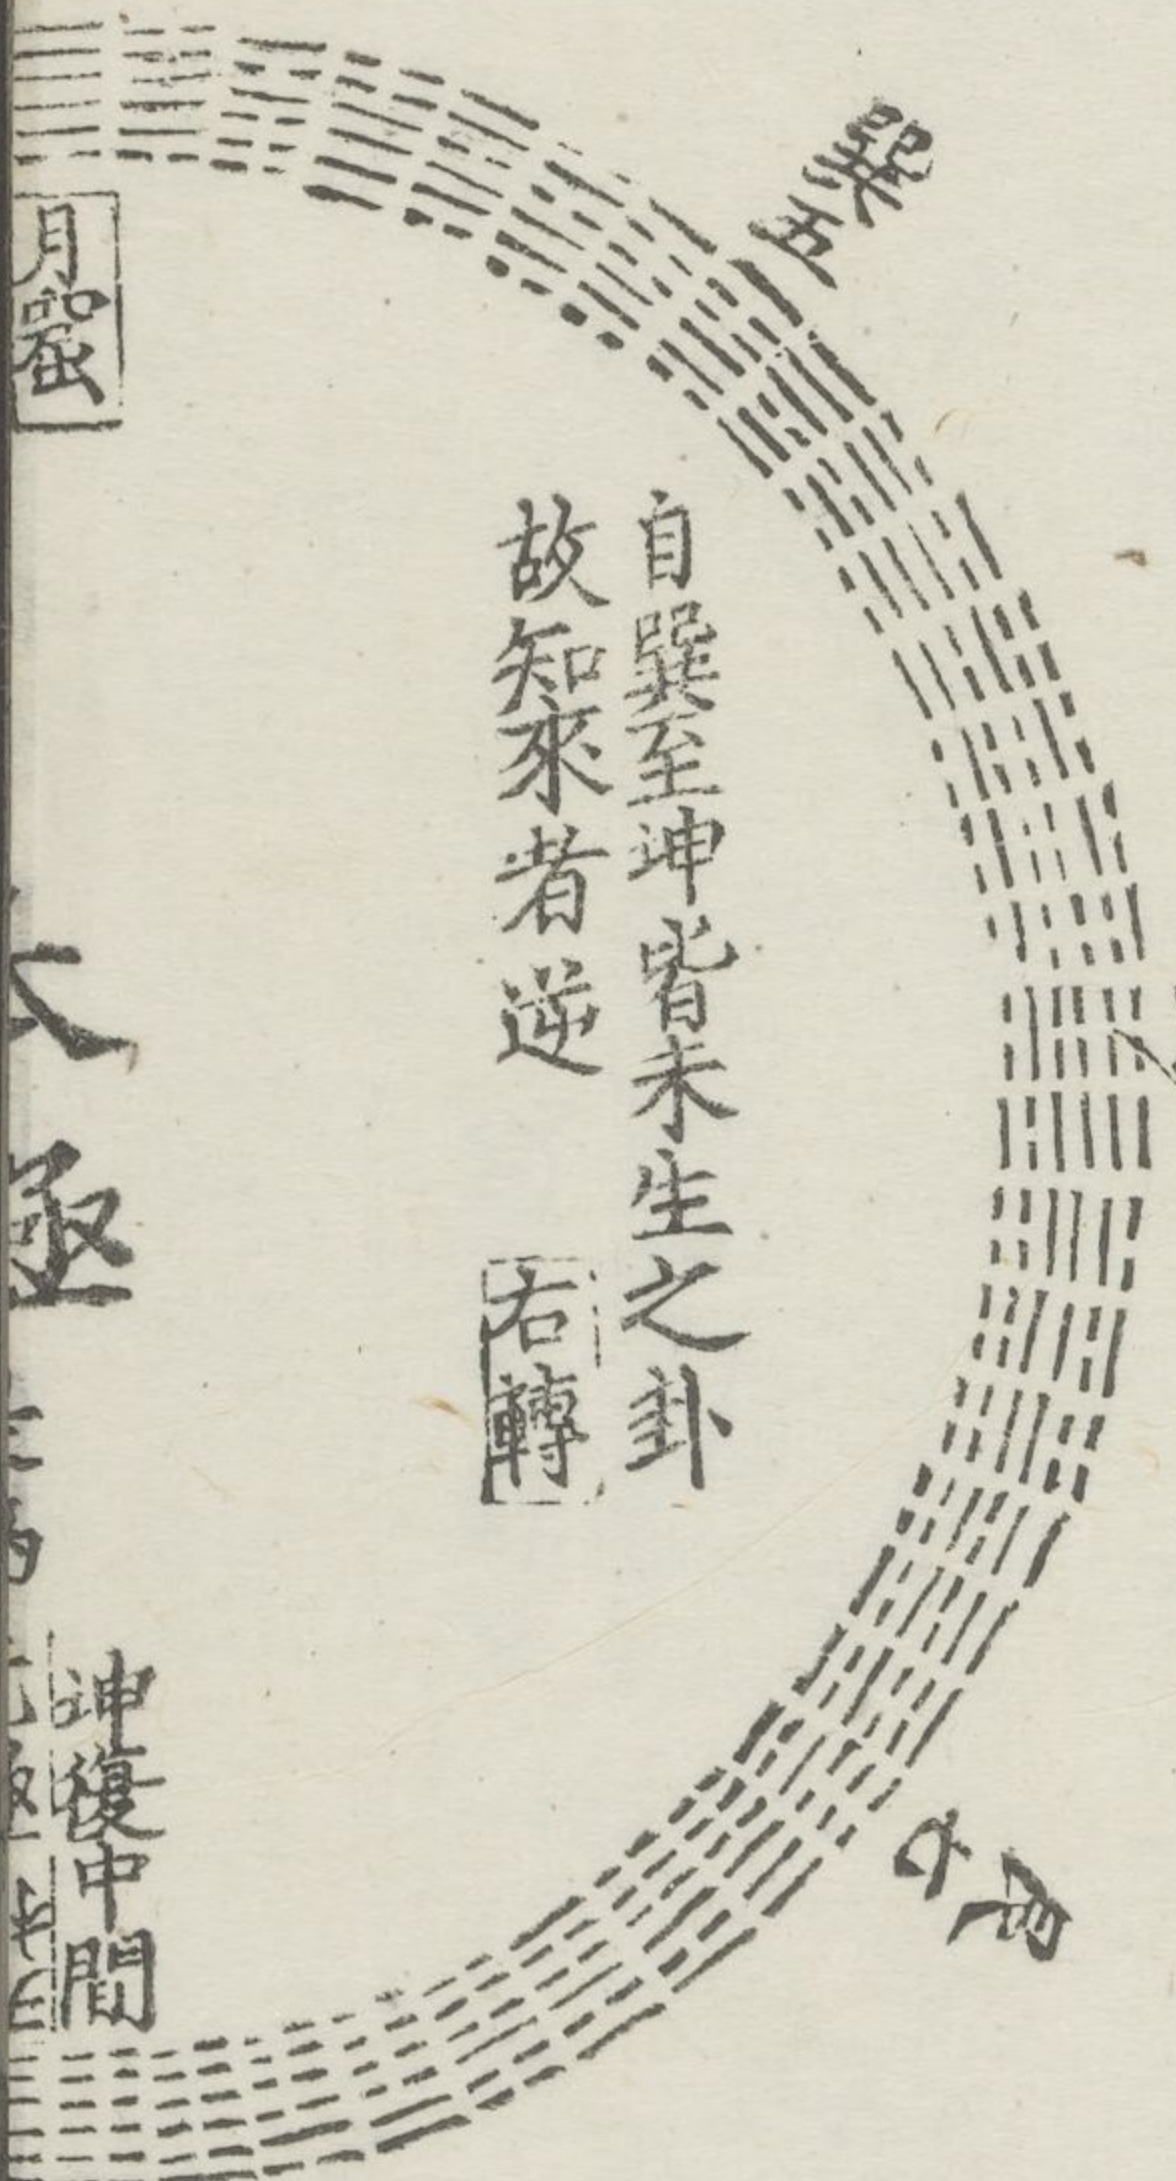 巽五
自巽至坤皆未生之卦
故知來者逆
右轉
月窟
太極
坤復中間